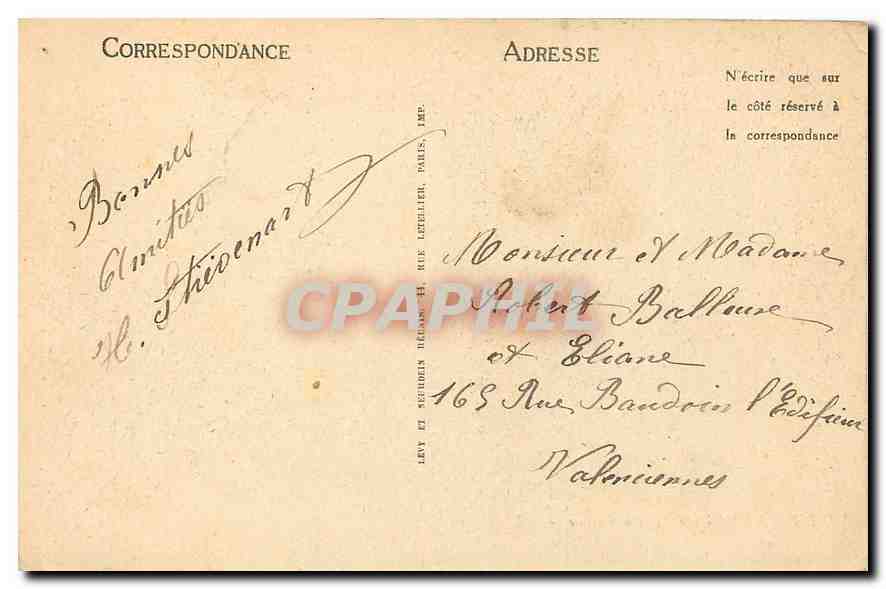 CORRESPONDANCE
ADRESSE
N'écrire que sur
le côté réservé à
la correspondance
Bonnes
Amitiés
H. Thévenart
LEVY ET NEURDEIN RÉUNIS, 44, RUE LETELLIER, PARIS, IMP.
CPAPHIL
Monsieur et Madame
Robert Balleure
et Eliane
165 Rue Baudoin l'Édifieur
Valenciennes